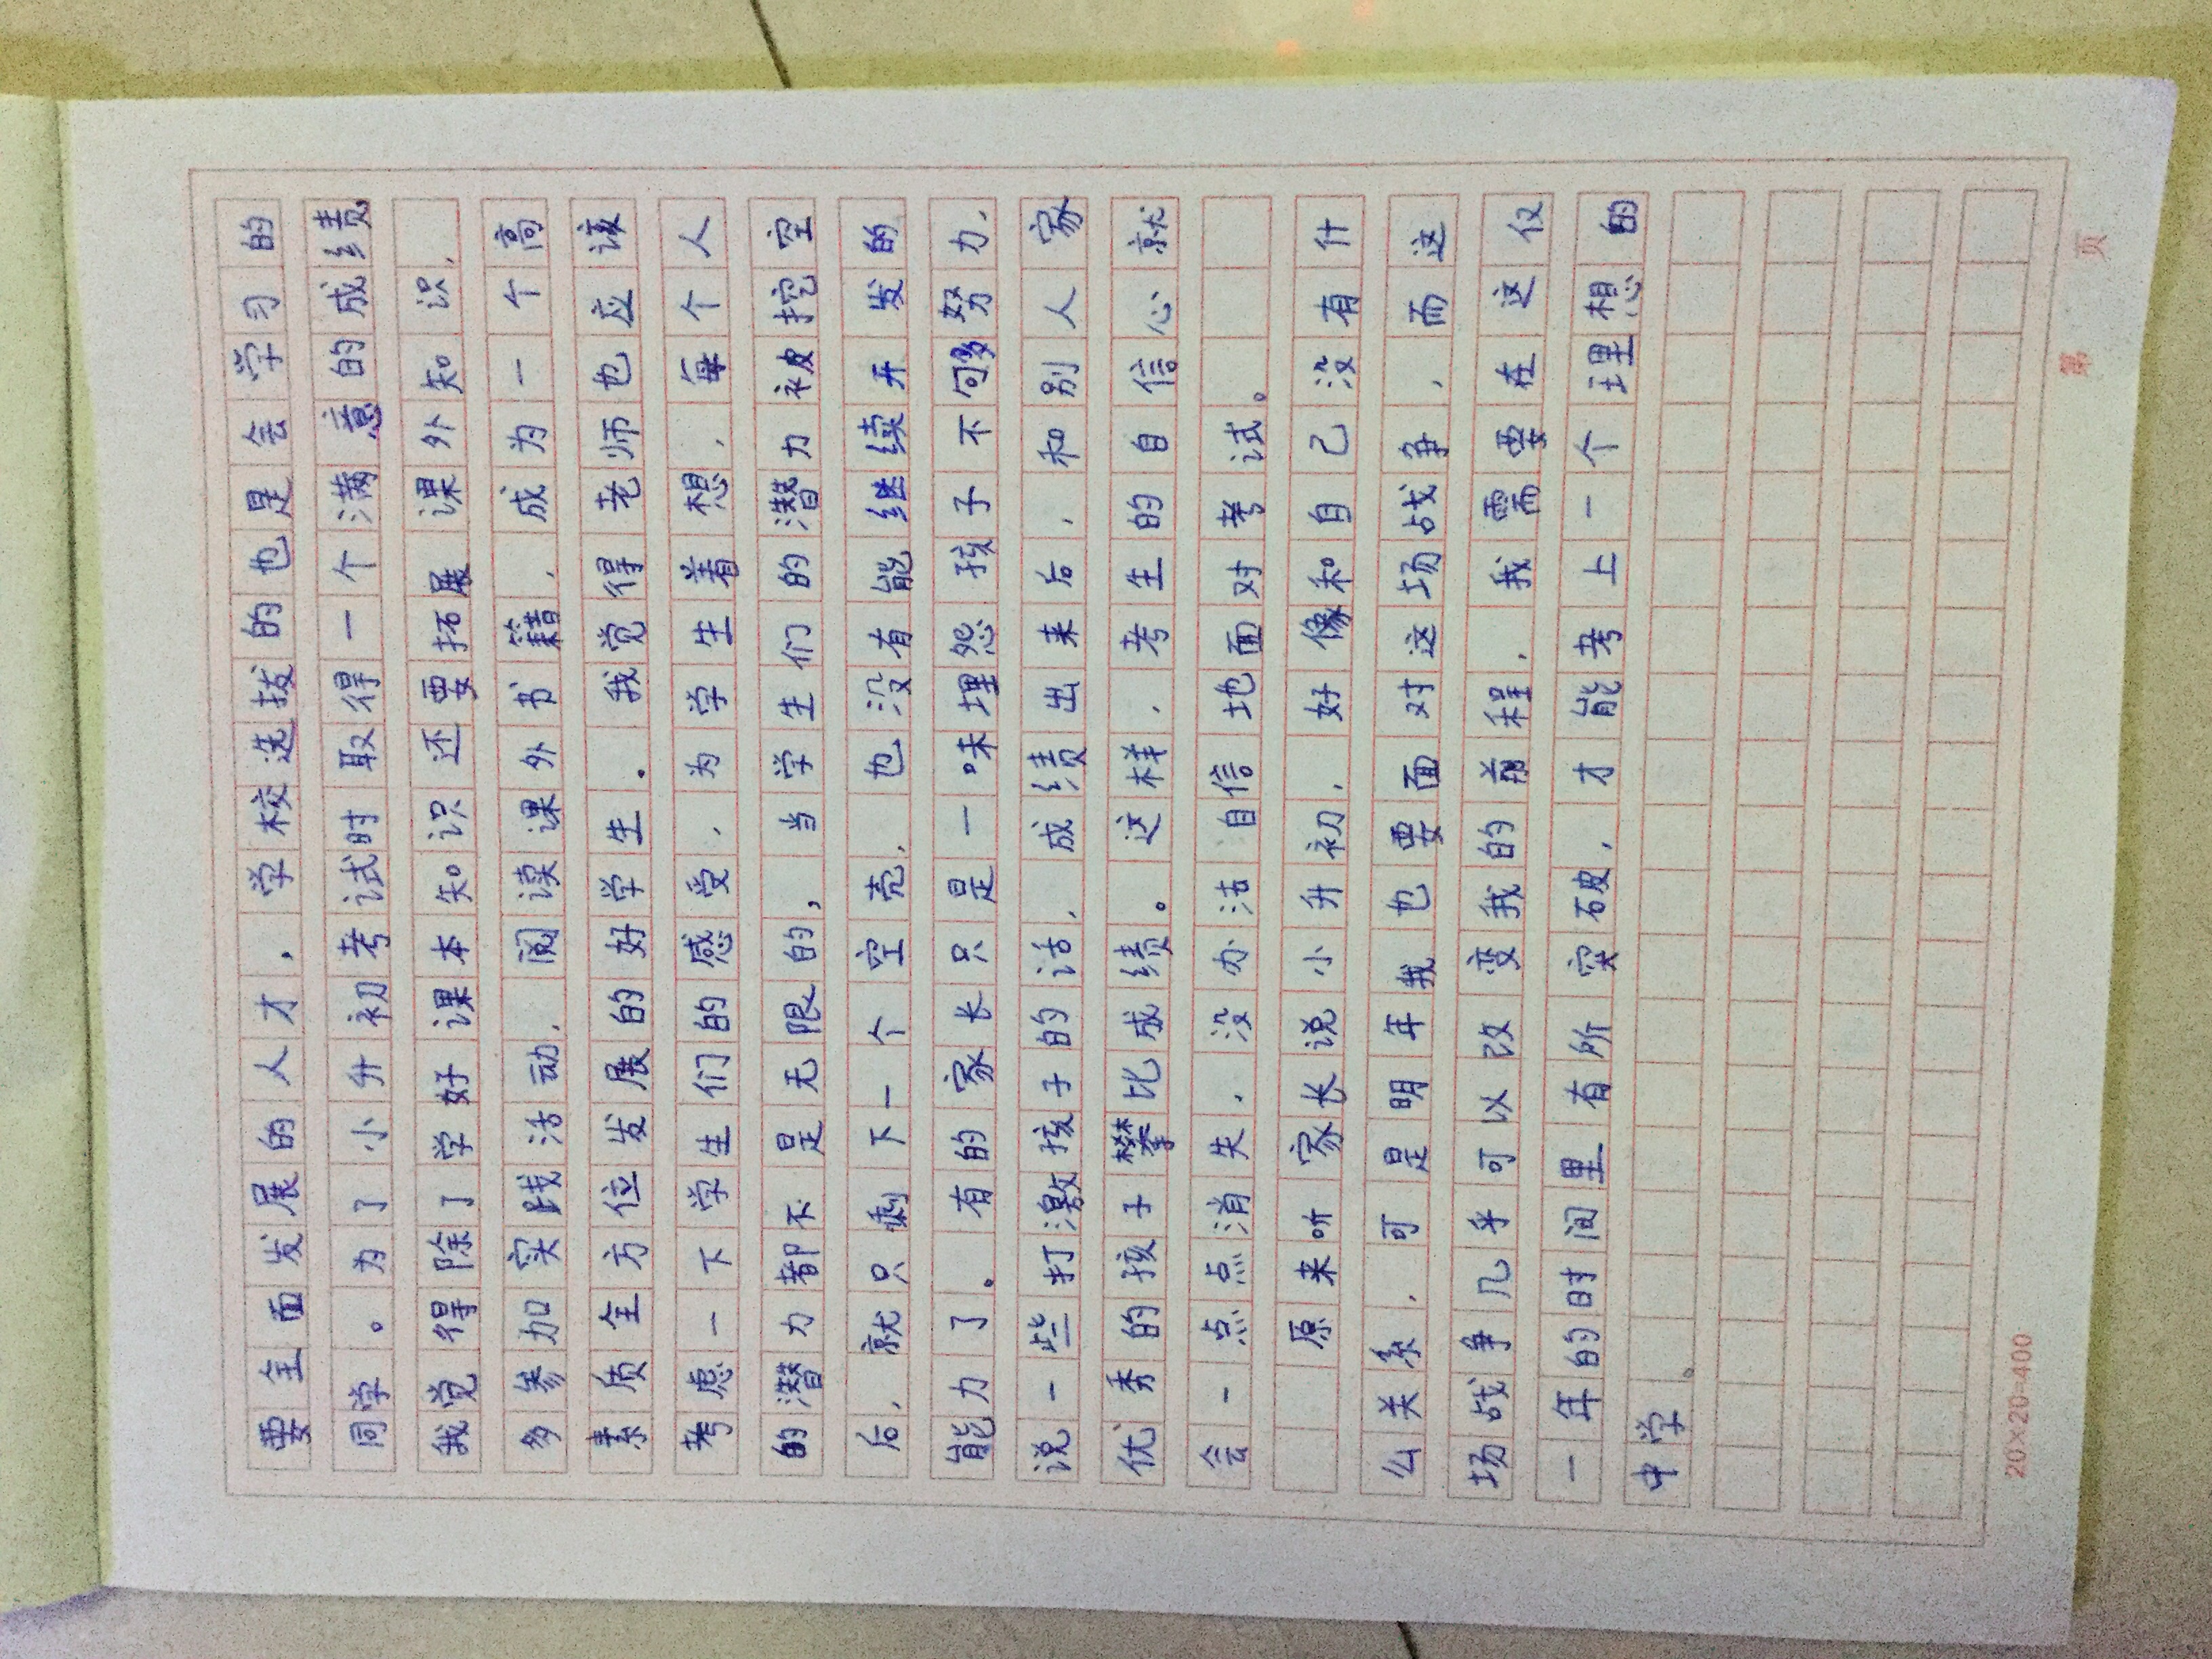 要全面发展的人才，学校选拔的也是会学习的
同学。为了小升初考试时取得一个满意的成绩，
我觉得除了学好课本知识还要拓展课外知识，
多参加实践活动，阅读课外书籍，成为一个高
素质全方位发展的好学生。我觉得老师也应该
考虑一下学生们的感受，为学生着想，每个人
的潜力都不是无限的，当学生们的潜力被挖空
后，就只剩下一个空壳，也没有能继续开发的
能力了。有的家长只是一味埋怨孩子不够努力，
说一些打激孩子的话，成绩出来后，和别人家
优秀的孩子攀比成绩。这样，考生的自信心就
会一点点消失，没办法自信地面对考试。
原来听家长说小升初，好像和自己没有什
么关系，可是明年我也要面对这场战争，而这
场战争几乎可以改变我的前程，我需要在这仅
一年的时间里有所突破，才能考上一个理想的
中学。
20×20=400
第 页